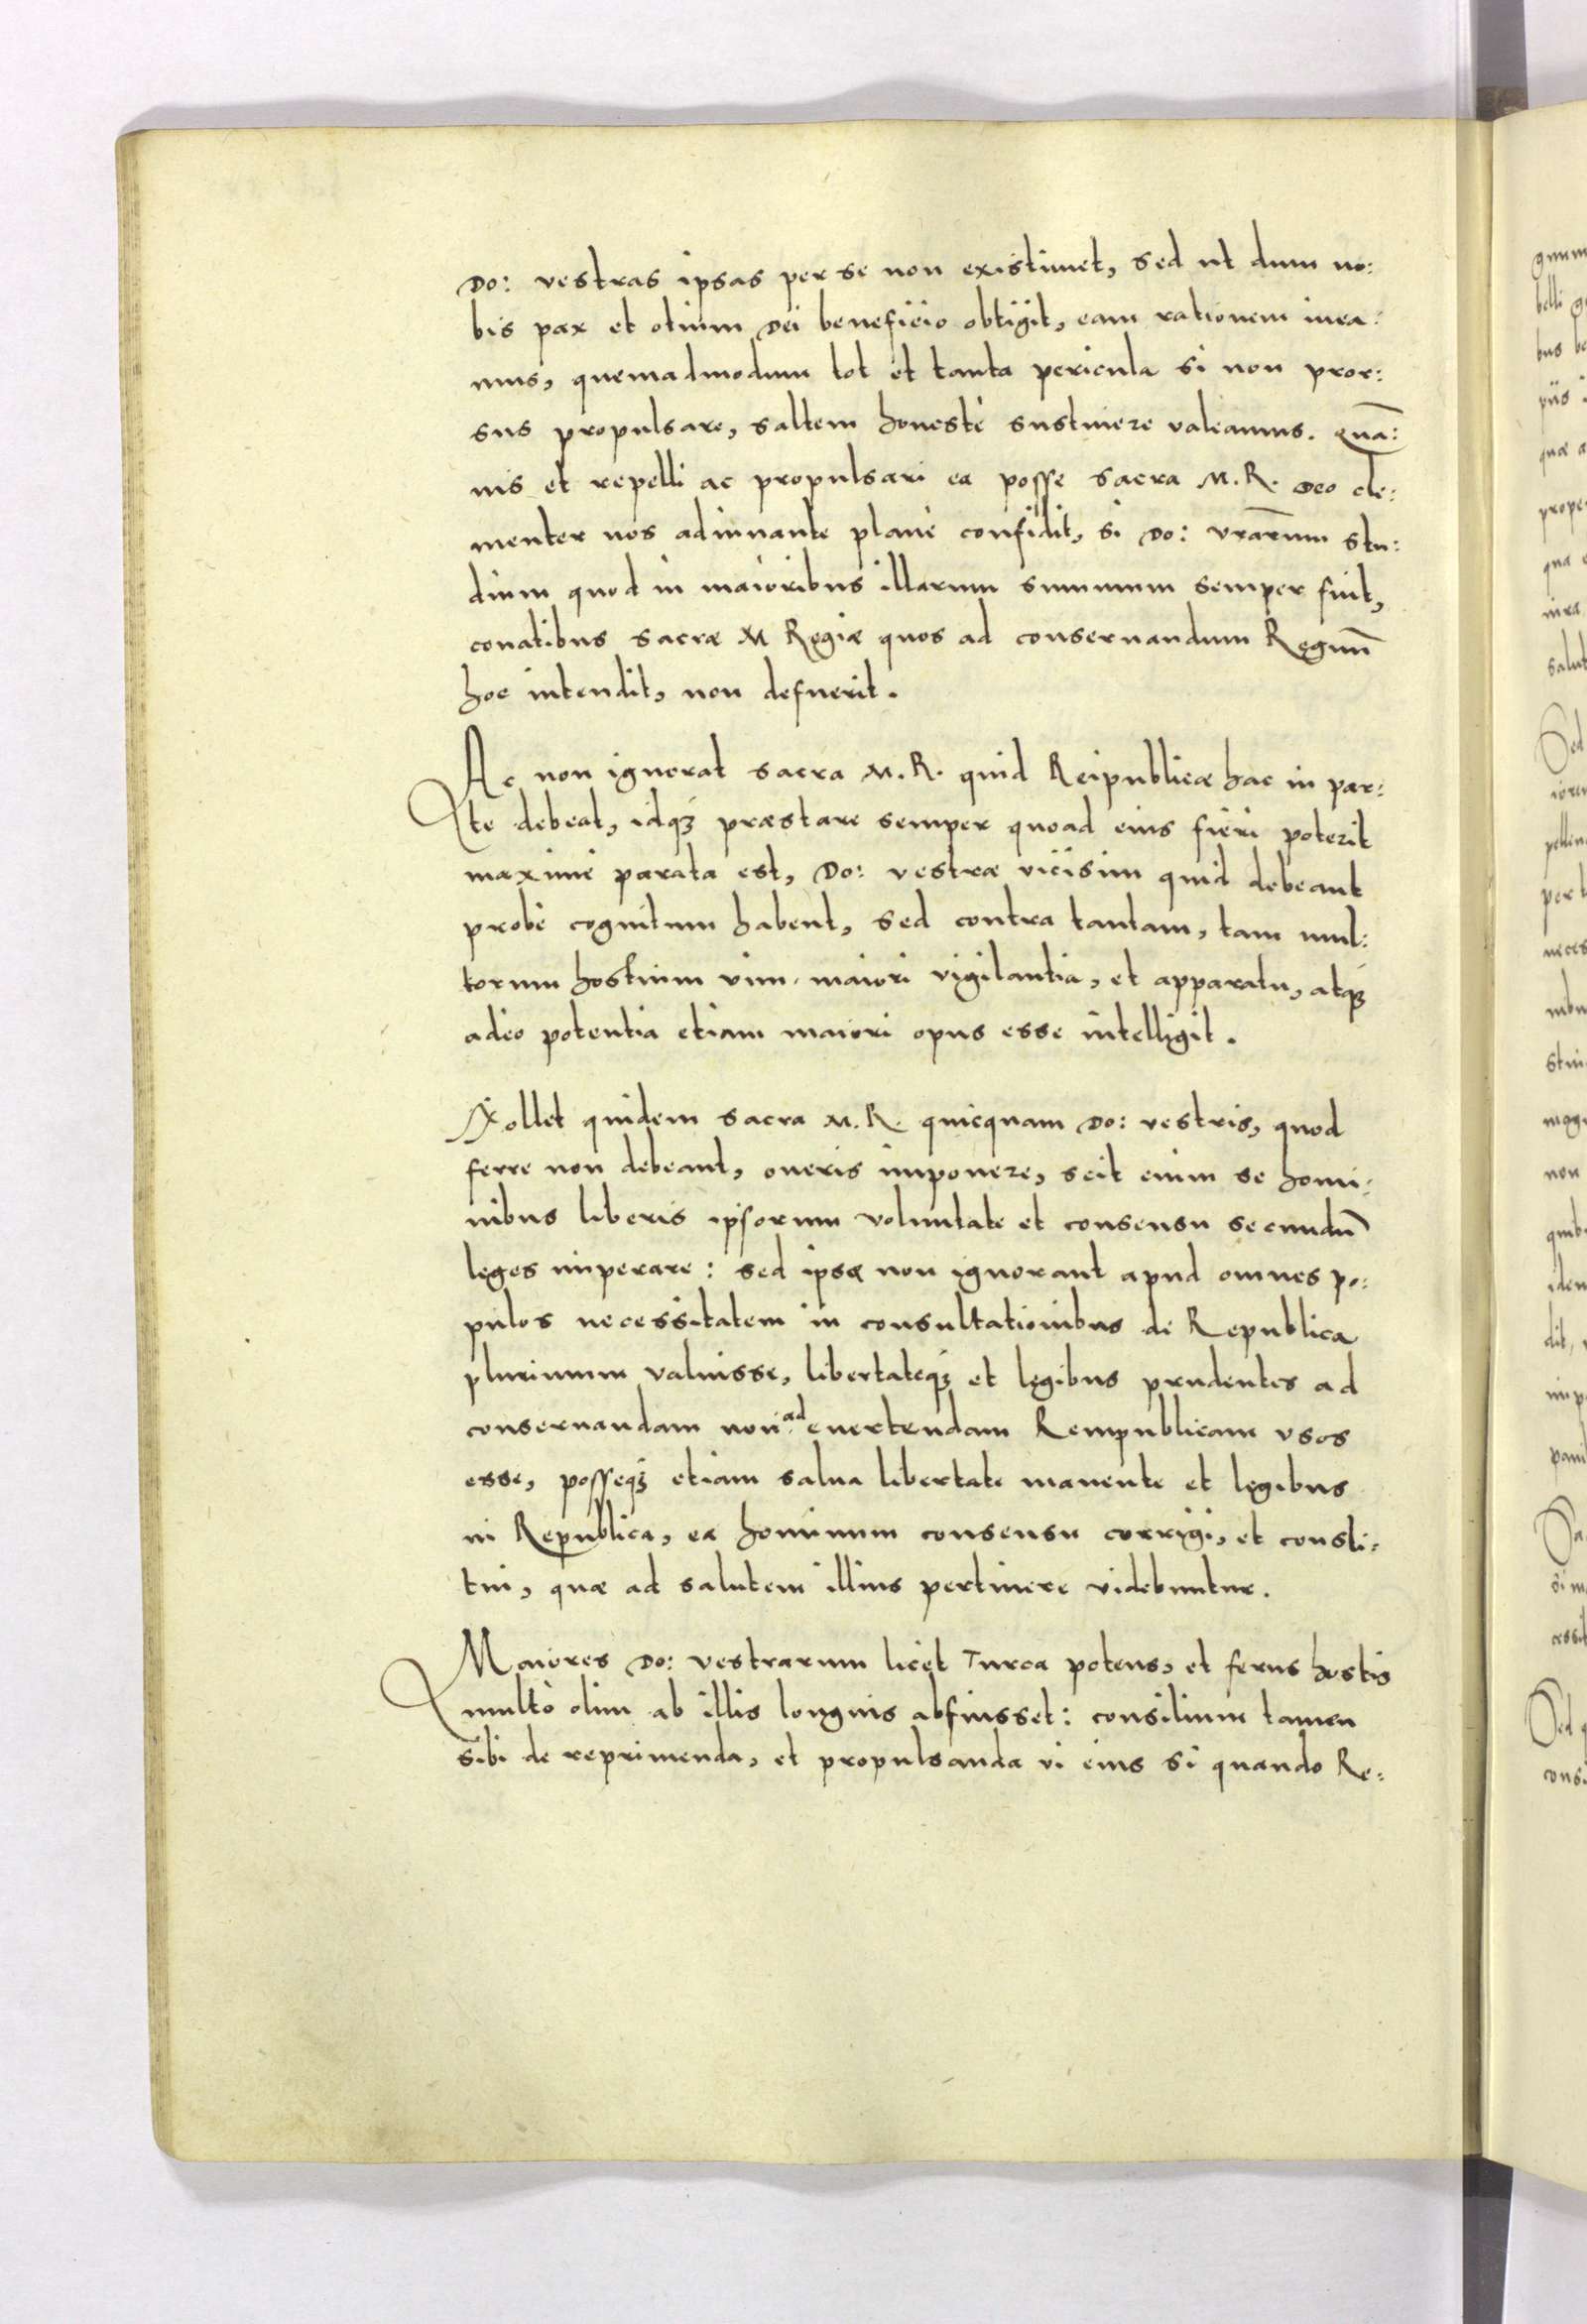 Do: vestras ipsas per se non existimet, sed ut dum no:
bis pax et otium Dei beneficio obtigit, eam rationem inea:
mus, quemadmodum tot et tanta pericula si non pror:
sus propulsare, saltem honestè sustinere valeamus. Quā:
uis et repelli ac propulsari ea posse sacra M. R. Deo cle:
menter nos adiuuante planè confidit, si Do: vr̄arum stu:
dium quod in maioribus illarum summum semper fuit,
conatibus sacræ M Regiæ quos ad conseruandum Regnū
hoc intendit, non defuerit.
Ac non ignorat sacra M. R. quid Reipublicæ hac in par:
te debeat, idq; præstare semper quoad eius fieri poterit
maximè parata est, Do: vestræ vicisim quid debeant
probè cognitum habent, sed contra tantam, tam mul:
torum hostium vim, maiori vigilantia, et apparatu, atq;
adeo potentia etiam maiori opus esse intelligit.
Nollet quidem sacra M. R. quicquam Do: vestris, quod
ferre non debeant, oneris imponere, scit enim se homi:
nibus liberis ipsorum voluntate et consensu secundū
leges imperare: sed ipsæ non ignorant apud omnes po:
pulos necessitatem in consultationibus de Republica
plurimum valuisse, libertateq; et legibus prudentes ad
conseruandam non ad euertendam Rempublicam vsos
esse, posseq; etiam salua libertate manente et legibus
in Republica, ea hominum consensu corrigi, et consti:
tui, quæ ad salutem illius pertinere videbuntur.
Maiores Do: vestrarum licet Turca potens, et ferus hostis
multò olim ab illis longius abfuisset: consilium tamen
sibi de reprimenda, et propulsanda vi eius si quando Re: